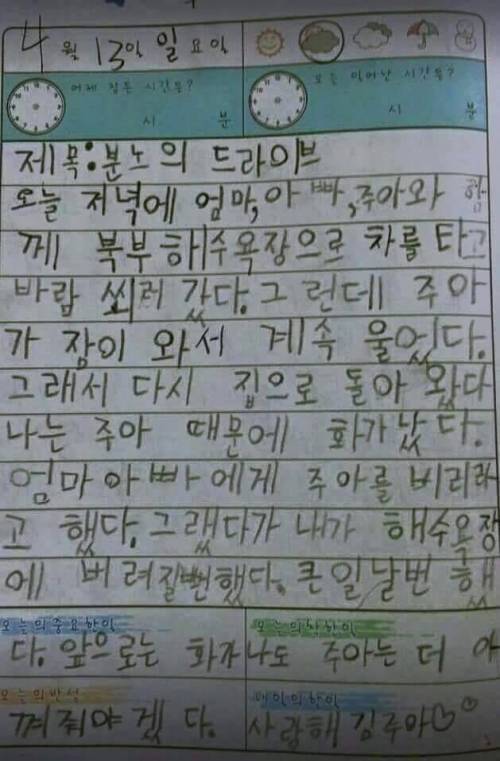 4월 13일 일요일
어제 잠든 시간은?
오늘 일어난 시간은?
시 분
시 분
제목:분노의 드라이브
오늘 저녁에 엄마,아빠,주아와 함
께 북부해수욕장으로 차를 타고
바람 쐬러 갔다.그런데 주아
가 잠이 와서 계속 울었다.
그래서 다시 집으로 돌아 왔다
나는 주아 때문에 화가 났다.
엄마아빠에게 주아를 버리라
고 했다.그랬다가 내가 해수욕장
에 버려질뻔했다.큰일날번 했
오늘의 중요한일
오늘의 착한일
다.앞으로는 화가나도 주아는 더 아
오늘의 반성
내일의 할일
껴줘야겠다.사랑해 김주아♡♡